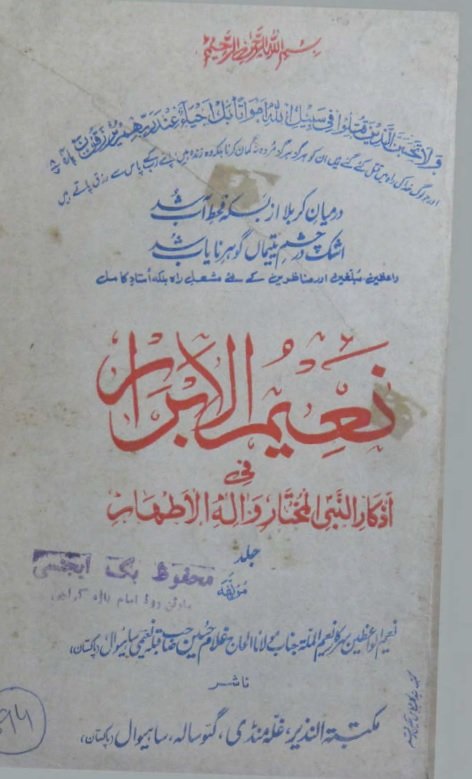 بسم اللہ الرحمن الرحیم
ولا تحسبن الذین قتلوا فی سبیل اللہ امواتا بل احیاء عند ربھم یرزقون
اور جو لوگ خدا کی راہ میں قتل کئے گئے ہیں ان کو ہرگز ہرگز مردہ نہ گمان کرنا بلکہ وہ زندہ ہیں اپنے رب کے پاس سے رزق پاتے ہیں
درمیان کربلا از بسکہ قحط آب شد
اشک در چشم یتیماں گوہر نایاب شد
واعظین، مبلغین اور مناظرین کے لئے مشعل راہ بلکہ استاد کامل
نَعِیمُ الاَبرَار
فِی
اَذکَارِ النَّبِیِّ المُختَارِ وَاٰلِہِ الاَطہَارِ
جلد
محفوظ بک ایجنسی
مارٹن روڈ امام باڑہ کراچی
مؤلفہ
نعیم الواعظین سرکار نعیم الملۃ جناب مولانا الحاج غلام حسین صاحب قبلہ نعیمی ساہیوال (پاکستان)
ناشر
مکتبۃ النذیر، غلہ منڈی، گئوسالہ، ساہیوال (پاکستان)